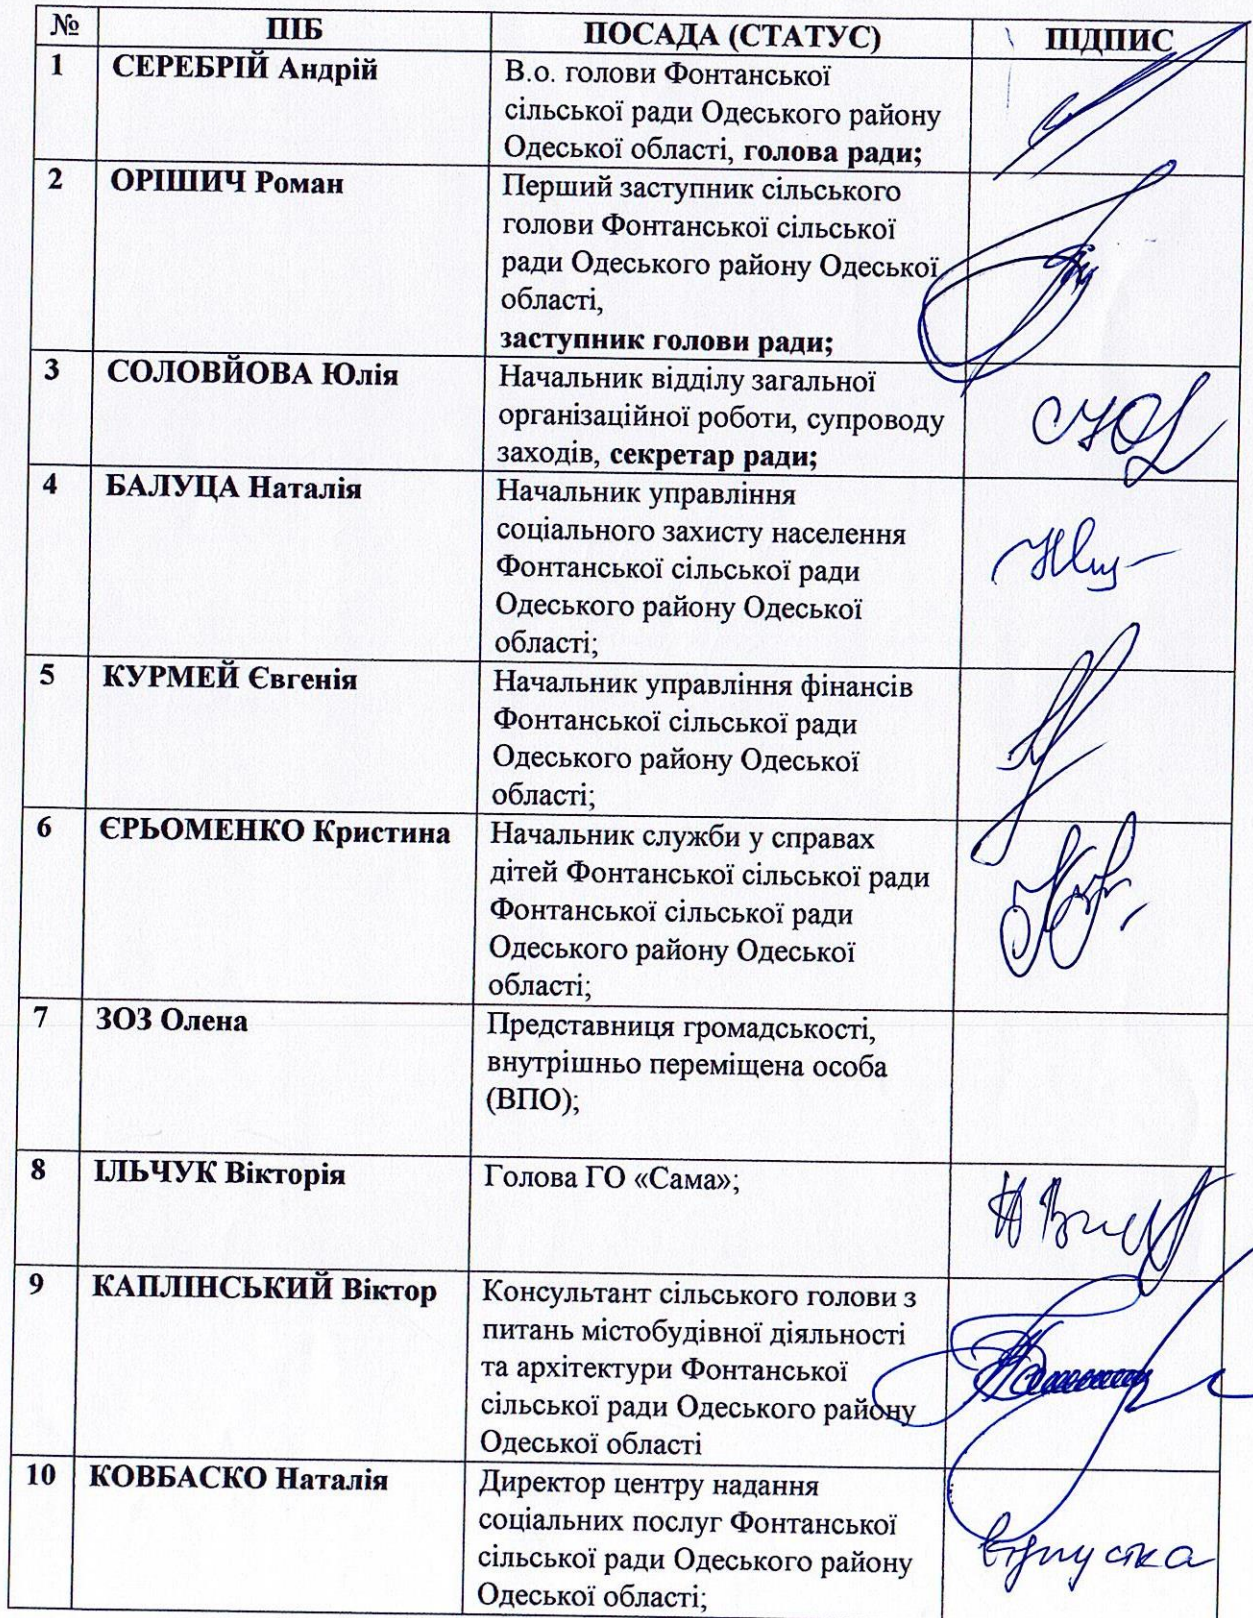 № ПІБ ПОСАДА (СТАТУС) ПІДПИС
1 СЕРЕБРІЙ Андрій В.о. голови Фонтанської
сільської ради Одеського району
Одеської області, голова ради;
2 ОРІШИЧ Роман Перший заступник сільського
голови Фонтанської сільської
ради Одеського району Одеської
області,
заступник голови ради;
3 СОЛОВЙОВА Юлія Начальник відділу загальної
організаційної роботи, супроводу
заходів, секретар ради;
4 БАЛУЦА Наталія Начальник управління
соціального захисту населення
Фонтанської сільської ради
Одеського району Одеської
області;
5 КУРМЕЙ Євгенія Начальник управління фінансів
Фонтанської сільської ради
Одеського району Одеської
області;
6 ЄРЬОМЕНКО Кристина Начальник служби у справах
дітей Фонтанської сільської ради
Фонтанської сільської ради
Одеського району Одеської
області;
7 ЗОЗ Олена Представниця громадськості,
внутрішньо переміщена особа
(ВПО);
8 ІЛЬЧУК Вікторія Голова ГО «Сама»;
9 КАПЛІНСЬКИЙ Віктор Консультант сільського голови з
питань містобудівної діяльності
та архітектури Фонтанської
сільської ради Одеського району
Одеської області
10 КОВБАСКО Наталія Директор центру надання
соціальних послуг Фонтанської
сільської ради Одеського району
Одеської області;
відпустка